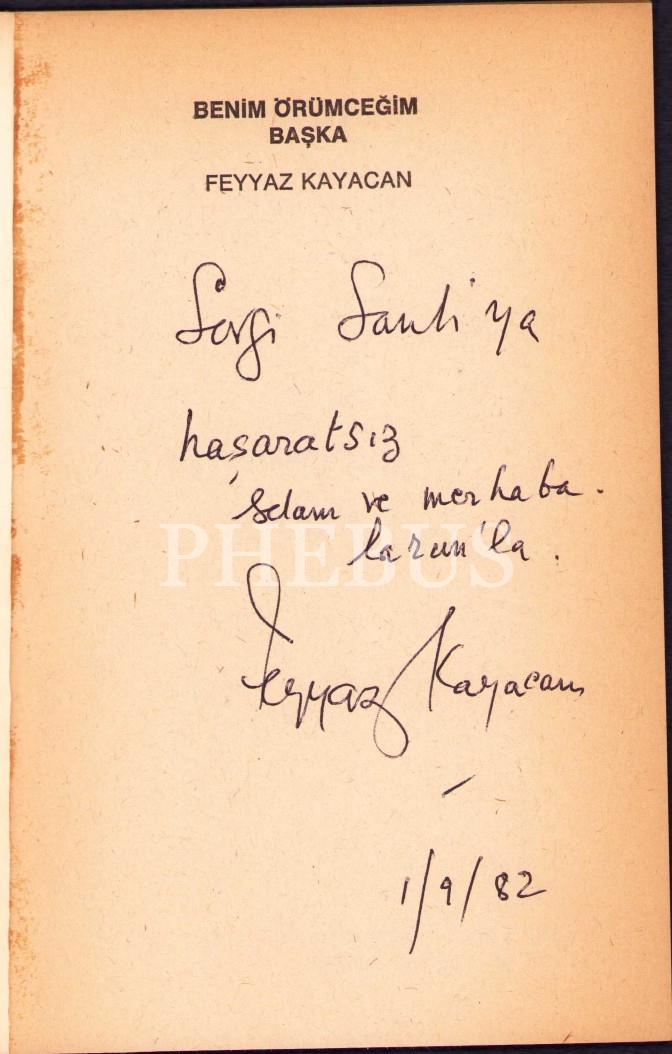 BENİM ÖRÜMCEĞİM
BAŞKA
FEYYAZ KAYACAN
Sevgi Sanlı'ya
haşaratsız
selam ve merhaba-
larım'la.
PHEBUS
Feyyaz Kayacan
1/9/82